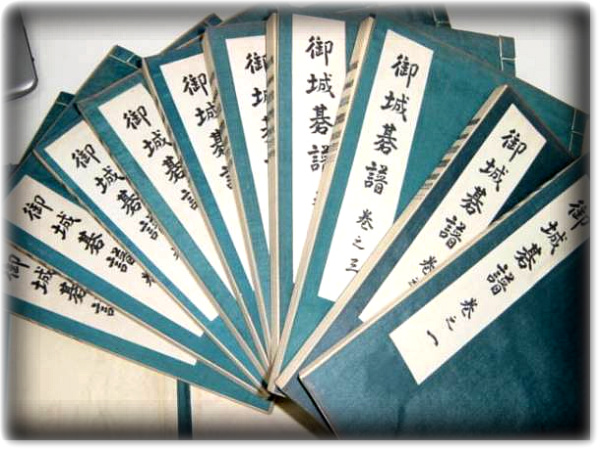 御城碁譜 卷之一
御城碁譜 卷之
御城碁譜 卷之三
御城碁譜
御城碁
御城碁
御城碁譜
御城碁譜
御城碁譜 卷
御城碁譜